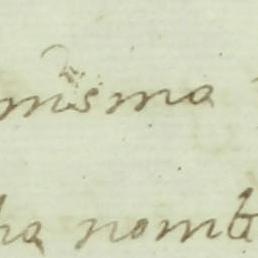 misma
ha nomb